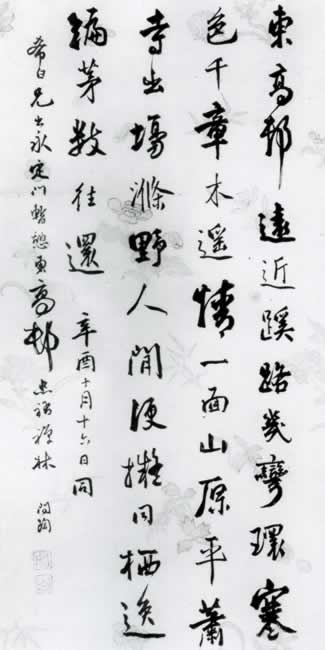 東高邨遠近蹊路幾彎環寒
色千章木遥情一面山原平蕭
寺出場滌野人閒便擬同栖逸
編茅數往還 辛酉十月十六日同
希白兄出永定門暫憩東高邨 祐禪林 問陶